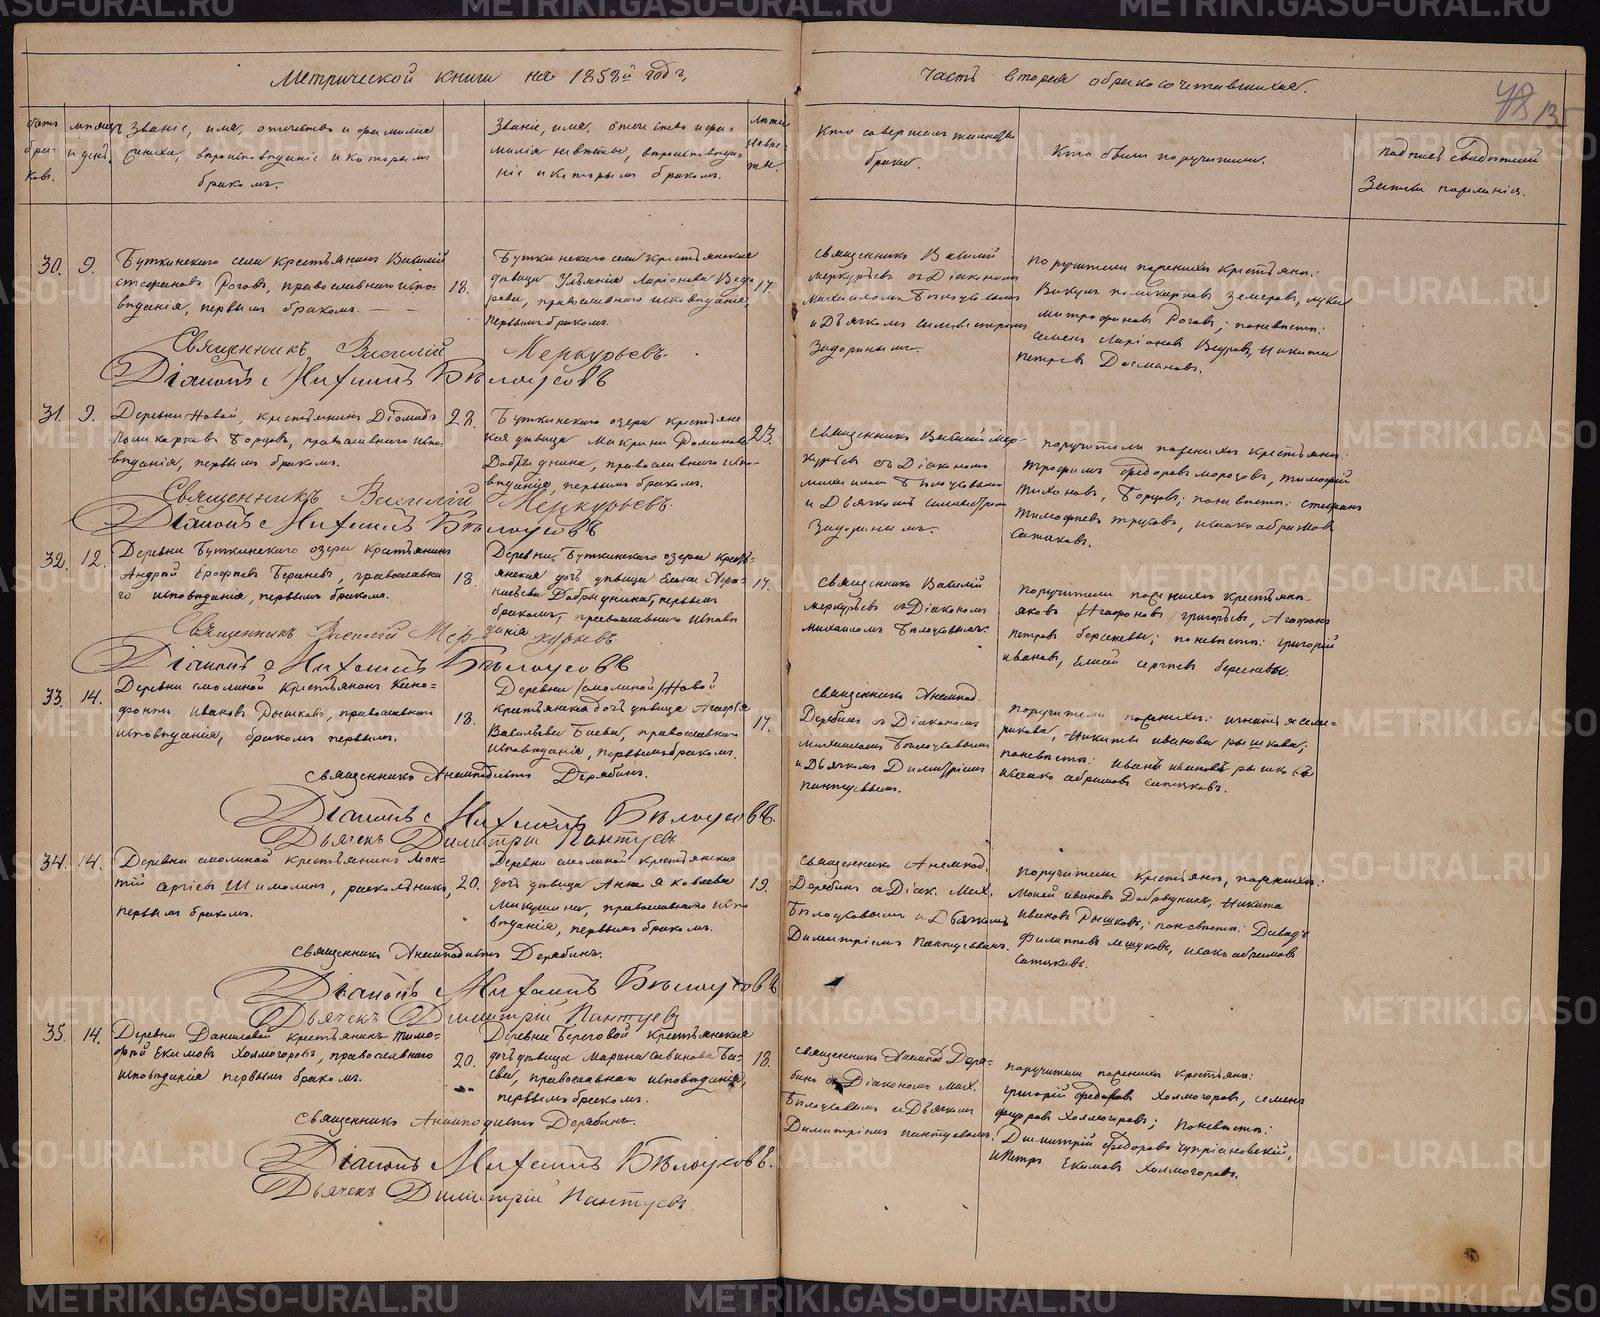 Метрической книги на 1858й годъ,
Часть вторая о бракосочетавшихся.
78 135
Званіе, имя, отечество и фамилія
жениха, вѣроисповѣданіе и которымъ
бракомъ.
Званіе, имя, отечество и фа-
милія невѣсты, вѣроисповѣда-
ніе и которымъ бракомъ.
Кто совершалъ таинство
брака.
Кто были поручители.
Подпись свидѣтелей
записи по желанію.
30. 9.
Буткинскаго села крестьянинъ Василій
Стефановъ Роговъ, православнаго испо-
вѣданія, первымъ бракомъ.
18.
Буткинскаго села крестьянская
дѣвица Ульянія Ларіонова
православнаго исповѣданія,
первымъ бракомъ.
17.
Священникъ Василій
Меркурьевъ съ Діакономъ
Михаиломъ Бѣлоусовымъ
и Дьячкомъ Сильвестромъ
Задоринымъ.
Поручители по женихѣ крестьяне:
Викулъ Поликарповъ Земеровъ, Лука
Митрофановъ Роговъ; по невѣстѣ:
Семенъ Ларіоновъ Никита
Петровъ
Священникъ Василій Меркурьевъ.
Діаконъ Михаилъ Бѣлоусовъ
31. 9.
Деревни Новой, крестьянинъ Діомидъ
Поликарповъ Борцовъ, православнаго испо-
вѣданія, первымъ бракомъ.
22.
Буткинскаго озера крестьянс-
кая дѣвица Макрина
православнаго испо-
вѣданія, первымъ бракомъ.
23.
Священникъ Василій Мер-
курьевъ съ Діакономъ
Михаиломъ Бѣлоусовымъ
и Дьячкомъ Сильвестромъ
Задоринымъ.
Поручители по женихѣ крестьяне:
Трофимъ Федоровъ Морозовъ, Тимофей
Тихоновъ Борцовъ; по невѣстѣ: Стефанъ
Тимофеевъ Исаакъ Абрамовъ
Священникъ Василій Меркурьевъ.
Діаконъ Михаилъ Бѣлоусовъ
32. 12.
Деревни Буткинскаго озера крестьянинъ
Андрей Ерофѣевъ православна-
го исповѣданія, первымъ бракомъ.
18.
Деревни Буткинскаго озера кресть-
янская дочь дѣвица Елена
первымъ
бракомъ, православнаго исповѣ-
данія
17.
Священникъ Василій
Меркурьевъ съ Діакономъ
Михаиломъ Бѣлоусовымъ.
Поручители по женихѣ крестьяне:
Яковъ Агафоновъ Григорьевъ, Агафонъ
Петровъ Берсеневы; по невѣстѣ: Григорій
Ивановъ, Елисей Сергѣевъ Берсеневы.
Священникъ Василій Меркурьевъ
Діаконъ Михаилъ Бѣлоусовъ
33. 14.
Деревни Смолиной крестьянинъ Ксено-
фонтъ Ивановъ Рышковъ, православнаго
исповѣданія, бракомъ первымъ.
18.
Деревни (Смолиной) Новой
крестьянская дочь дѣвица Агафія
Васильева Баева, православнаго
исповѣданія, первымъ бракомъ.
17.
Священникъ Анемпод.
Дерябинъ съ Діакономъ
Михаиломъ Бѣлоусовымъ
и Дьячкомъ Димитріемъ
Пантуевымъ.
Никиты Иванова Рышкова;
по невѣстѣ: Иванъ Ивановъ Рышковъ
Исаакъ Абрамовъ
Священникъ Анемподистъ Дерябинъ.
Діаконъ Михаилъ Бѣлоусовъ.
Дьячекъ Димитрій Пантуевъ
34. 14.
Деревни Смолиной крестьянинъ
Шимолинъ, раскольникъ,
первымъ бракомъ.
20.
Деревни Смолиной крестьянская
дочь дѣвица Анна Яковлева
Микушина, православнаго испо-
вѣданія, первымъ бракомъ.
19.
Священникъ Анемпод.
Дерябинъ съ Діак. Мих.
Бѣлоусовымъ и Дьячкомъ
Димитріемъ Пантуевымъ.
Поручители крестьяне, по женихѣ:
Моисей Ивановъ Добрыдинъ, Никита
Ивановъ Рышковъ; по невѣстѣ: Давидъ
Филипповъ Исаакъ Абрамовъ
Священникъ Анемподистъ Дерябинъ.
Діаконъ Михаилъ Бѣлоусовъ
Дьячекъ Димитрій Пантуевъ
35. 14.
Деревни Даниловой крестьянинъ Тимо-
фей Екимовъ Холмогоровъ, православнаго
исповѣданія первымъ бракомъ.
20.
Деревни Береговой крестьянская
дочь дѣвица Марина Савинова Ба-
ева, православнаго исповѣданія,
первымъ бракомъ.
18.
Священникъ Анемпод. Деря-
бинъ съ Діакономъ Мих.
Бѣлоусовымъ и Дьячкомъ
Димитріемъ Пантуевымъ.
Поручители по женихѣ крестьяне:
Григорій Федоровъ Холмогоровъ, Семенъ
Федоровъ Холмогоровъ; по невѣстѣ:
Димитрій Федоровъ
и Петръ Екимовъ Холмогоровъ.
Священникъ Анемподистъ Дерябинъ.
Діаконъ Михаилъ Бѣлоусовъ.
Дьячекъ Димитрій Пантуевъ.
METRIKI.GASO-URAL.RU